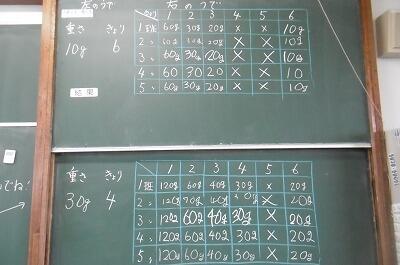 左のうで 右のうで
重さ きょり
10g 6
きょり 1 2 3 4 5 6
1班 60g 30g 20g × × 10g
2〃 60g 30g 20g × × 10g
3〃 60g 30g 20g × × 10g
4〃 60 30 20 × × 10
5〃 60g 30g 20g × × 10g
結果
重さ きょり
30g 4
1 2 3 4 5 6
1班 120g 60g 40g 30g × 20g
2〃 120g 60g 40g 30g × 20g
3〃 120g 60g 40g 30g × 20g
4〃 120g 60g 40g 30g × 20g
5〃 120g 60g 40g 30g × 20g
でね!